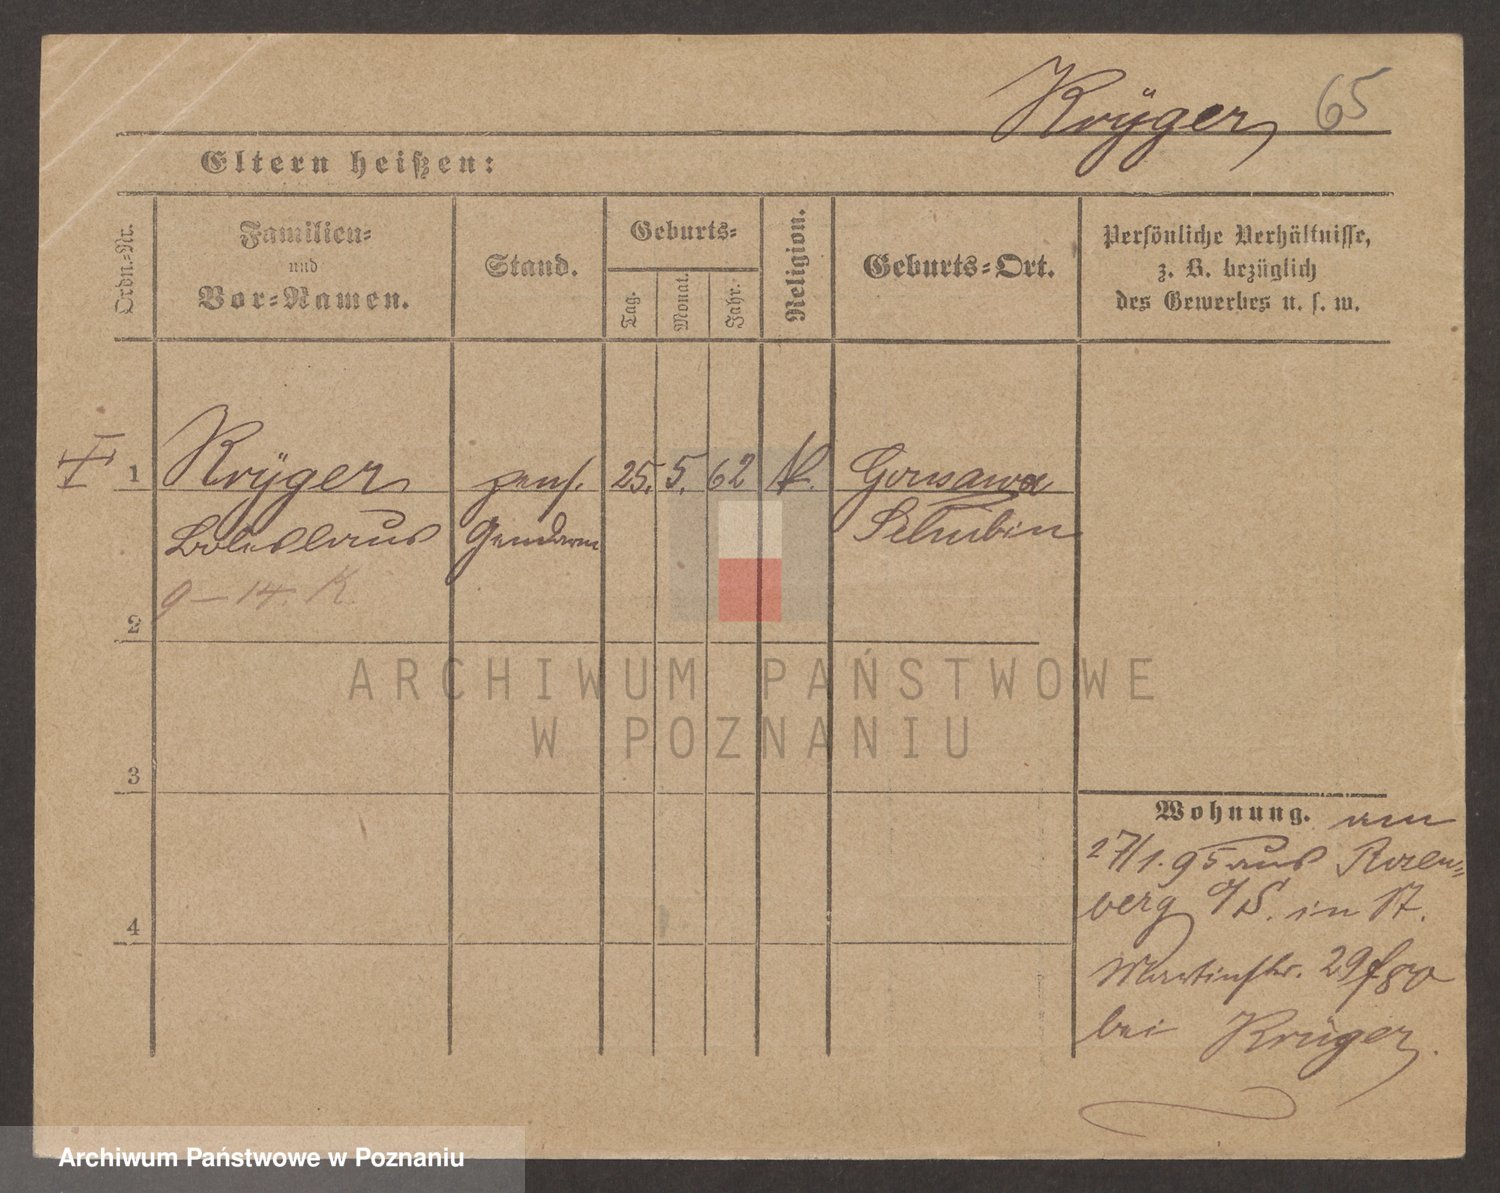 Krÿger 65
Eltern heißen:
Ordn.-Nr.
Familien-
und
Vor-Namen.
Stand.
Geburts-
Tag.
Monat.
Jahr.
Religion.
Geburts-Ort.
Persönliche Verhältnisse,
z. B. bezüglich
des Gewerbes u. s. w.
1 Krÿger pens. 25. 5. 62 K. Gonsawa
Boleslaus Gendarm Schubin
9 – 14. K.
2
3
4
Wohnung. am
27/1. 95 aus Rosen-
berg O/S. in St.
Martinstr. 29
bei Krüger.
ARCHIWUM PAŃSTWOWE
W POZNANIU
Archiwum Państwowe w Poznaniu